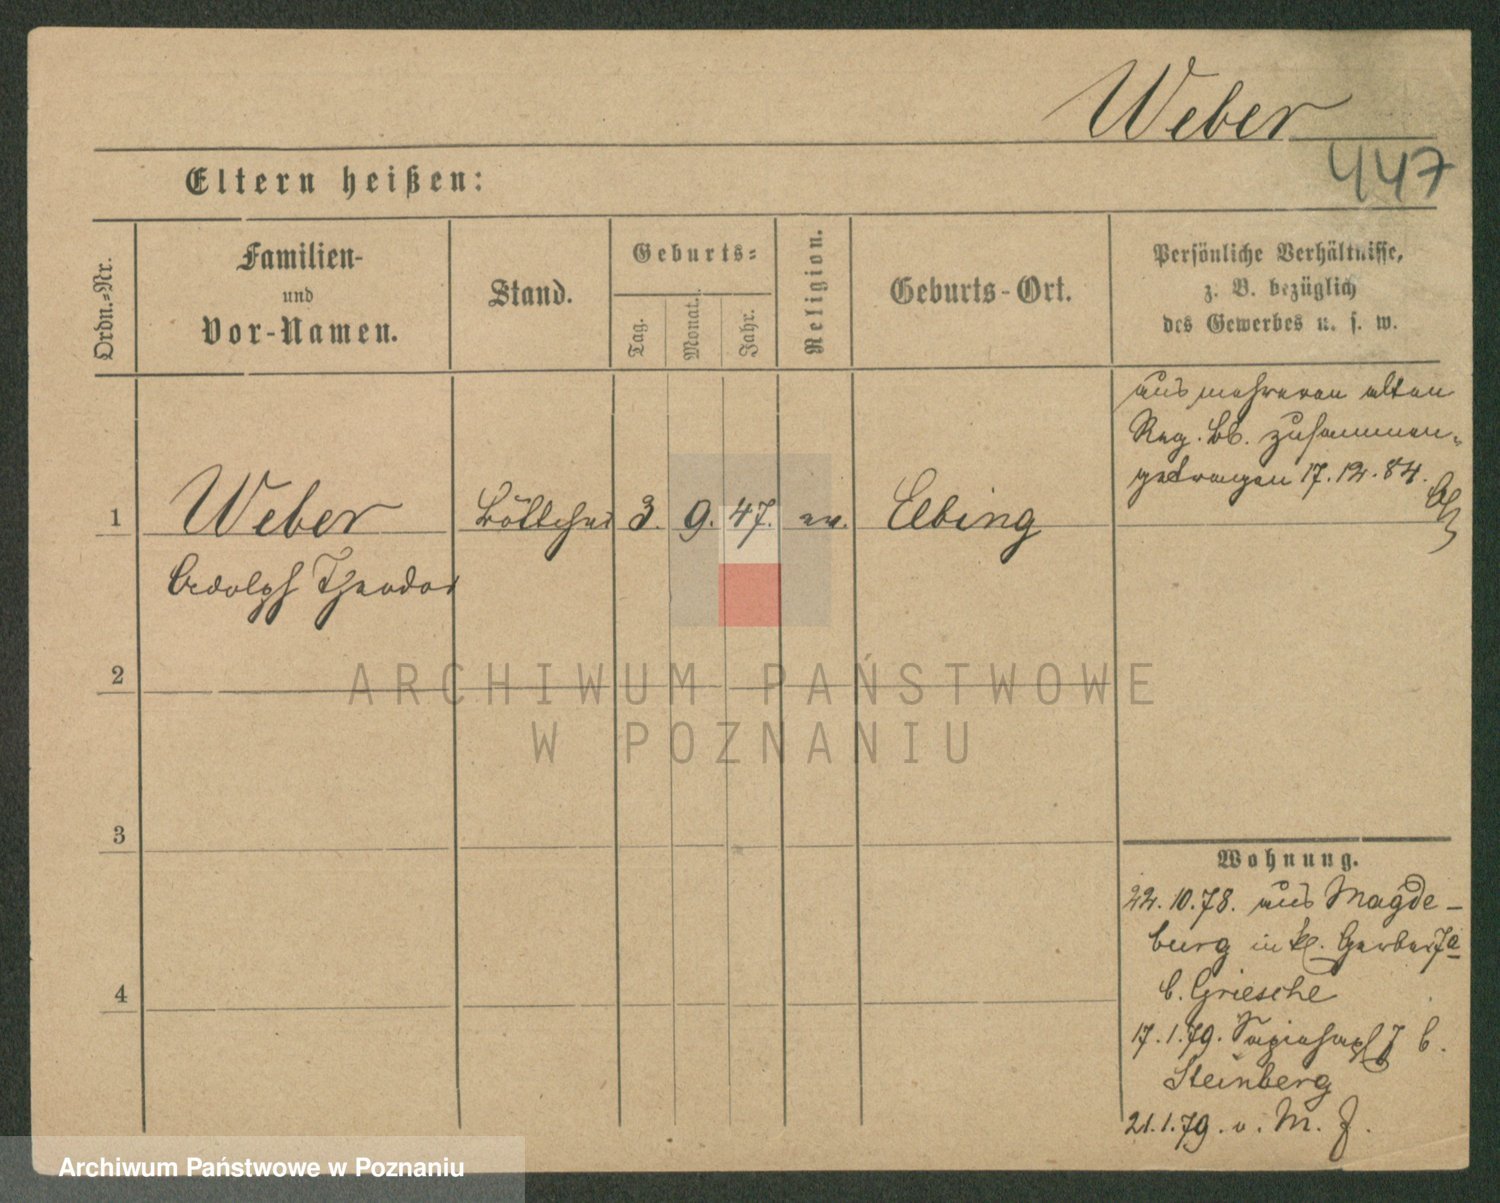 Weber
447
Eltern heißen:
Ordn.-Nr.
Familien-
und
Vor-Namen.
Stand.
Geburts-
Tag.
Monat.
Jahr.
Religion.
Geburts-Ort.
Persönliche Verhältnisse,
z. B. bezüglich
des Gewerbes u. s. w.
aus mehreren alten
Reg. bb. zusammen-
getragen 17.12.84.
1
Weber
Böttcher
3.
9.
47.
ev.
Elbing
Adolph Theodor
2
3
4
Wohnung.
22.10.78. aus Magde-
burg in kl. Gerber
b. Griesche
17.1.79. b.
Steinberg
21.1.79. v. M.
ARCHIWUM PAŃSTWOWE
W POZNANIU
Archiwum Państwowe w Poznaniu